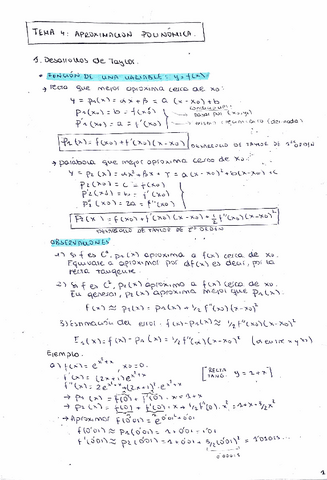 TEMA 4: APROXIMACIÓN POLINÓMICA.
1. Desarrollos de Taylor.
• FUNCIÓN DE UNA VARIABLE: y=f(x)
→ recta que mejor aproxima cerca de x0:
y = p1(x) = αx + β = a(x-x0)+b
p1(x0) = b = f(x0)
p'1(x0) = a = f'(x0)
p1(x) = f(x0)+f'(x0)(x-x0) DESARROLLO DE TAYLOR DE 1er ORDEN
→ parábola que mejor aproxima cerca de x0:
y = p2(x) = αx²+βx+γ = a(x-x0)²+b(x-x0)+c
p2(x0) = c = f(x0)
p'2(x0) = b = f'(x0)
p''2(x0) = 2a = f''(x0)
p2(x) = f(x0)+f'(x0)(x-x0)+1/2 f''(x0)(x-x0)²
DESARROLLO DE TAYLOR DE 2º ORDEN
OBSERVACIONES
1) Si f es C¹, p1(x) aproxima a f(x) cerca de x0.
Equivale a aproximar por df(x) es decir, por la
recta tangente.
2) Si f es C², p2(x) aproxima a f(x) cerca de x0.
En general, p2(x) aproxima mejor que p1(x).
f(x) ≈ p2(x) = p1(x) + 1/2 f''(x0)(x-x0)²
3) Estimación del error. f(x)-p1(x) ≈ 1/2 f''(x0)(x-x0)²
E1(x) = f(x)-p1(x) = 1/2 f''(c)(x-x0)²
Ejemplo.
a) f(x) = e^(x²+x), x0=0.
f'(x) = (2x+1)e^(x²+x)
f''(x) = 2e^(x²+x)+(2x+1)²·e^(x²+x)
[RECTA TANG. y = 1+x]
→ p1(x) = f(0)+f'(0)·x = 1+x
→ p2(x) = f(0)+f'(0)·x+1/2 f''(0)·x² = 1+x+3/2x²
→ Aproximar f(0'01) = e^(0'01²+0'01)
f(0'01) ≈ p1(0'01) = 1+0'01 = 1'01
f(0'01) ≈ p2(0'01) = 1+0'01+3/2(0'01)² = 1'01015...
0'00015
1